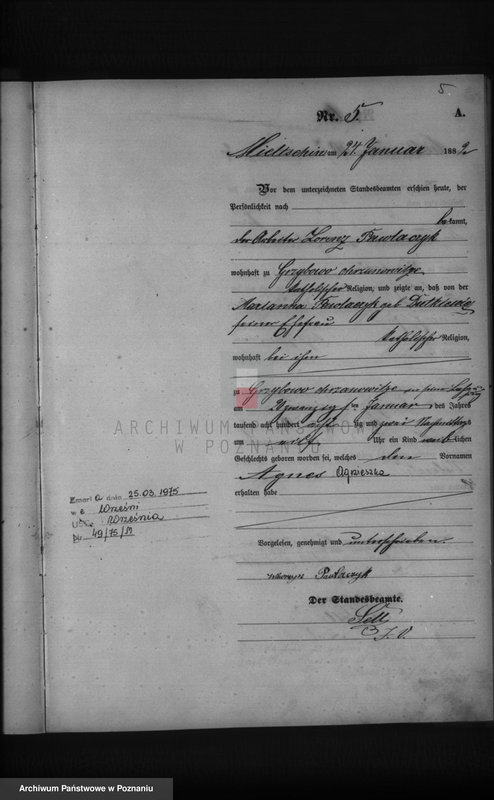 5
Nr. 5.
A.
Mieltschin am 24. Januar 1882
Vor dem unterzeichneten Standesbeamten erschien heute, der
Persönlichkeit nach
bekannt,
der Arbeiter Lorenz Pawlaczyk
wohnhaft zu Grzybowo
katholischer Religion, und zeigte an, daß von der
Marianna Pawlaczyk geb Dutkiewicz
seiner Ehefrau
katholischer Religion,
wohnhaft bei ihm
zu Grzybowo
am Januar des Jahres
tausend acht hundert achtzig und zwei Nachmittags
um eilf Uhr ein Kind weiblichen
Geschlechts geboren worden sei, welches den Vornamen
Agnes Agnieszka
erhalten habe
Zmarł a dnia 25.03.1975
w e Wrześni
USC Września
Nr 49/75/
Vorgelesen, genehmigt und unterschrieben.
Pawlaczyk
Der Standesbeamte.
J. V.
ARCHIWUM PAŃSTWOWE
W POZNANIU
Archiwum Państwowe w Poznaniu